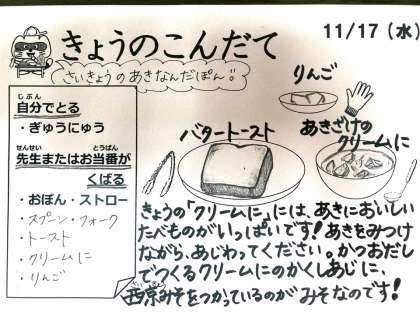 きょうのこんだて
11/17（水）
さいきょうのあきなんだぽん!!
じぶん
自分でとる
・ぎゅうにゅう
せんせい とうばん
先生またはお当番が
くばる
・おぼん・ストロー
・スプーン・フォーク
・トースト
・クリームに
・りんご
りんご
バタートースト
あきざけの
クリームに
きょうの「クリームに」には、あきにおいしい
たべものがいっぱいです!あきをみつけ
ながら、あじわってください。かつおだし
でつくるクリームにのかくしあじに、
西京みそをつかっているのが みそなのです!